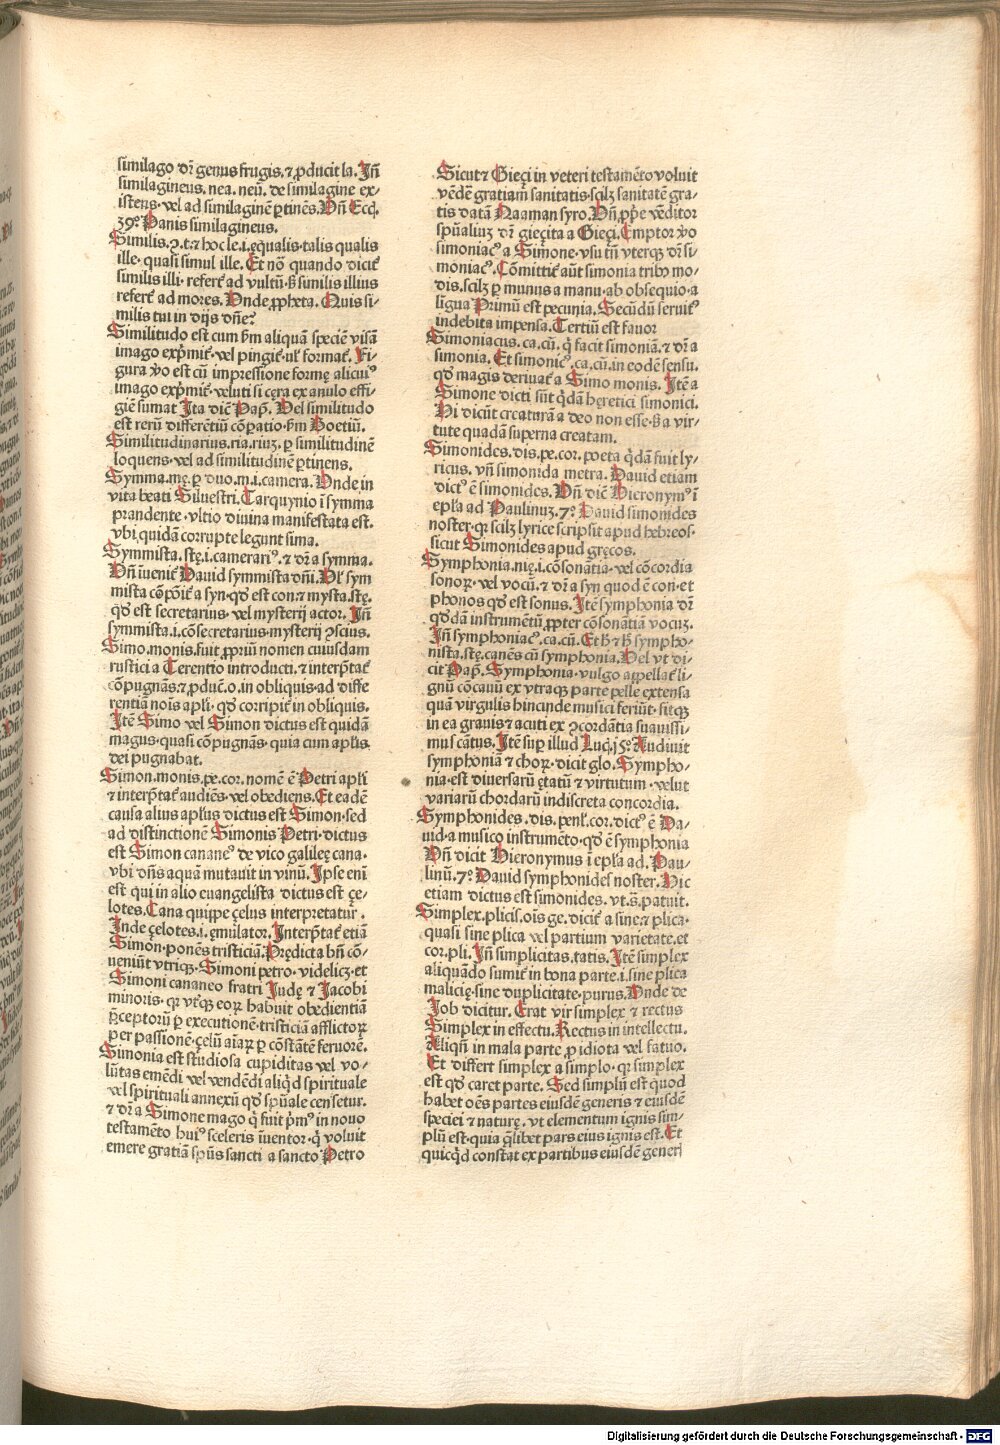 similago dr̄ genus frugis. ⁊ ꝓducit la. Jn̄
similagineus. nea. neū. de similagine ex-
istens. vel ad similaginē ꝑtinēs. Vn̄ Eccl̄.
39° Panis similagineus.
Similis. ꝯ. t. ⁊ hoc le. i. ęqualis. talis qualis
ille. quasi simul ille. Et nō quando dicit᷑
similis illi. refert᷑ ad vultū. ß similis illius
refert᷑ ad mores. Vnde ꝓpheta. Quis si-
milis tui in dijs dn̄e?
Similitudo est cum ẜm aliquā speciē visā
imago exp̄mit᷑. vel pingit᷑. ul̓ format᷑. Fi-
gura v̓o est cū impressione formę alicui⁹
imago exp̄mit᷑. veluti si cęra ex anulo effi-
giē sumat Jta dic̄ Pap̄. Vel similitudo
est rerū differētiū cōꝑatio. ẜm Boetiū.
Similitudinarius. ria. riuꝫ. ꝑ similitudinē
loquens. vel ad similitudinē ꝑtinens.
Symma. mę. ꝑ duo. m. i. camera. Vnde in
vita beati Siluestri. Tarquynio ī symma
prandente. vltio diuina manifestata est.
vbi quidā corrupte legunt sima.
Symmista. stę. i. camerari⁹. ⁊ dr̄ a symma.
Vn̄ īuenit᷑ Dauid symmista dn̄i. Vl̓ sym
mista cōpōit᷑ a syn. qd̓ est con. ⁊ mysta. stę.
qd̓ est secretarius. vel mysterij actor. Jn̄
symmista. i. cōsecretarius. mysterij ꝯscius.
Simo. monis. fuit ꝓpriū nomen cuiusdam
rustici a Terentio introducti. ⁊ interp̄tat᷑
cōpugnās. ⁊ ꝓduc̄. o. in obliquis. ad diffe
rentiā nois apl̄i. qd̓ corripit᷑ in obliquis.
Jtē Simo vel Simon dictus est quidā
magus. quasi cōpugnās. quia cum apl̄is
dei pugnabat.
Simon. monis. pe. cor. nomē ē Petri apl̄i
⁊ interp̄tat᷑ audiēs. vel obediens. Et eadē
causa alius apl̄us dictus est Simon. sed
ad distinctionē Simonis Petri. dictus
est Simon canane⁹ de vico galileę cana.
vbi dn̄s aquā mutauit in vinū. Jpse eni
est qui in alio euangelista dictus est çe-
lotes. Cana quippe çelus interpretatur.
Jnde çelotes. i. ęmulator. Jnterp̄tat᷑ etiā
Simon. ponēs tristiciā. Prędicta bn̄ cō-
ueniūt vtriqꝫ. Simoni petro. videlicꝫ. et
Simoni cananeo fratri Judę ⁊ Jacobi
minoris. qꝛ vtqꝫ eoꝝ habuit obedientiā
p̄ceptorū ꝑ executionē. tristiciā afflictoꝝ
per passionē. çelū aiaꝝ ꝑ cōstātē feruorē.
Simonia est studiosa cupiditas vel vo-
lūtas emēdi vel vendēdi aliqd̓ spirituale
vel spirituali annexū qd̓ spūale censetur.
⁊ dr̄ a Simone mago q̇ fuit p̄m⁹ in nouo
testamēto hui⁹ sceleris īuentor. q̇ voluit
emere gratiā spūs sancti a sancto Petro
Sicut ⁊ Gieçi in veteri testamēto voluit
vēdē gratiam̄ sanitatis. scilꝫ sanitatē gra-
tis datā Naaman syro. Vn̄ ꝓp̄e vēditor
spūaliuꝫ dr̄ gieçita a Gieçi. Emptor v̓o
simoniac⁹ a Simone. vsu tn̄ vterqꝫ dr̄ si-
moniac⁹. Cōmittit᷑ aūt simonia tribꝫ mo-
dis. scilꝫ ꝑ munus a manu. ab obsequio. a
līgua Primū est pecunia. Secūdū seruit⁹
indebita impensa. Tertiū est fauor
Simoniacus. ca. cū. q̇ facit simoniā. ⁊ dr̄ a
simonia. Et simonic⁹. ca. cū. in eodē sensu.
qd̓ magis deriuat᷑ a Simo monis. Jtē a
Simone dicti sūt q̇dā hęretici simonici.
Hi dicūt creaturā a deo non esse. ß a vir-
tute quadā superna creatam.
Simonides. dis. pe. cor. poeta q̇dā fuit ly-
ricus. vn̄ simonida metra. Dauid etiam
dict⁹ ē simonides. Vn̄ dic̄ Hieronym⁹ ī
epl̄a ad Paulinuꝫ. 7° Dauid simonides
noster. qꝛ scilꝫ lyrice scripsit apud hebreos.
sicut Simonides apud gręcos.
Symphonia. nię. i. cōsonātia. vel cōcordia
sonoꝝ. vel vocū. ⁊ dr̄ a syn quod ē con. et
phonos qd̓ est sonus. Jtē symphonia dr̄
qd̓dā instrumētū ꝓpter cōsonātiā vocuꝫ.
Jn̄ symphoniac⁹. ca. cū. Et h̓ ⁊ h̓ sympho-
nista. stę. canēs cū symphonia. Vel vt di-
cit Pap̄. Symphonia. vulgo appellat᷑ li-
gnū cōcauū ex vtraqꝫ parte pelle extensa
quā virgulis hincinde musici feriūt. fitqꝫ
in ea grauis ⁊ acuti ex ꝯcordātia suauissi-
mus cātus. Jtē suꝑ illud Luc̄. j5° Audiuit
symphoniā ⁊ choꝝ. dicit glo. Sympho-
nia. est diuersarū ętatū ⁊ virtutum. velut
variarū chordarū indiscreta concordia.
Symphonides. dis. penl̓. cor. dict⁹ ē Da-
uid. a musico instrumēto. qd̓ ē symphonia
Vn̄ dicit Hieronymus ī epl̄a ad. Pau-
linū. 7° Dauid symphonides noster. Hic
etiam dictus est simonides. vt. s̄. patuit.
Simplex. plicis. oīs ge. dicit᷑ a sine. ⁊ plica.
quasi sine plica vel partium varietate. et
cor. pli. Jn̄ simplicitas. tatis. Jtē simplex
aliquādo sumit᷑ in bona parte. i. sine plica
malicię. sine duplicitate. purus. Vnde de
Job dicitur. Erat vir simplex ⁊ rectus
Simplex in effectu. Rectus in intellectu.
Aliqn̄ in mala parte ꝓ idiota vel fatuo.
Et differt simplex a simplo. qꝛ simplex
est qd̓ caret parte. Sed simplū est quod
habet oēs partes eiusdē generis ⁊ eiusdē
speciei ⁊ naturę. vt elementum ignis sim-
plū est. quia q̄libet pars eius ignis est. Et
quicqd̓ constat ex partibus eiusdē generi
Digitalisierung gefördert durch die Deutsche Forschungsgemeinschaft - DFG